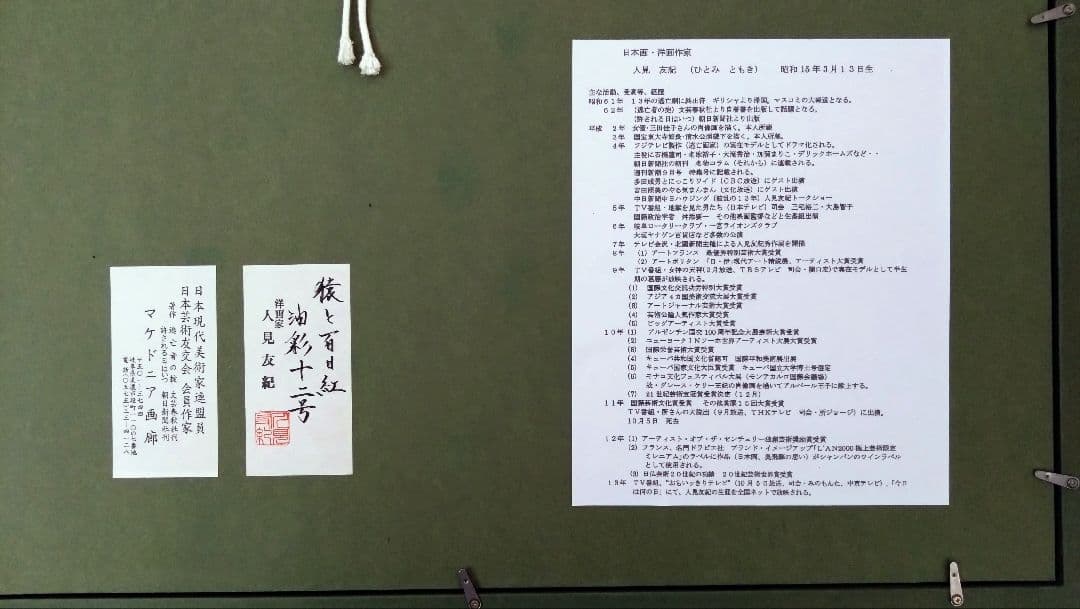 日本現代美術家連盟員
日本芸術友交会 会員作家
著作 逃亡者の掟 文芸春秋社刊
許される日はいつ 朝日新聞社刊
マケドニア画廊
猿と百日紅
油彩十二号
洋画家
人見友紀
日本画・洋画作家
人見 友紀 (ひとみ ともき) 昭和15年3月13日生
主な活動、受賞等、経歴
昭和61年 13年の逃亡劇に終止符 ギリシャより帰国。マスコミの大報道となる。
62年 (逃亡者の掟)文芸春秋社より自著書を出版して話題となる。
(許される日はいつ)朝日新聞社より出版
平成 2年 女優・三田佳子さんの肖像画を描く。本人所蔵
3年 国宝東大寺館長・清水公照猊下を描く。本人所蔵。
4年 フジテレビ製作(逃亡画家)の実在モデルとしてドラマ化される。
主役に石橋蓮司・名取裕子・大滝秀治・加賀まりこ・デリックホームズなど・・
朝日新聞社の朝刊 名物コラム(それからも)に連載される。
週刊新潮9月号 特集号に記載される。
多田成男とにっこりワイド(CBC放送)にゲスト出演
吉田照美のやる気まんまん(文化放送)にゲスト出演
中日新聞中日ハウジング(波乱の13年)人見友紀トークショー
5年 TV番組・地獄を見た男たち(日本テレビ)司会 三宅裕二・大島智子
国際政治学者 舛添要一 その他映画監督などと生番組出演
6年 岐阜ロータリークラブ・一宮ライオンズクラブ
大垣ヤナゲン百貨店など多数の公演
7年 テレビ金沢・北国新聞主催による人見友紀秀作展を開催
8年 (1) アートフランス 最優秀特別芸術大賞受賞
(2) アートポリタン 「日・伊」現代アート精鋭展、アーティスト大賞受賞
9年 TV番組・女神の天秤(2月放送、TBSテレビ 司会・関口宏)で実在モデルとして半生
期の葛藤が放映される。
(1) 国際文化交流功労特別大賞受賞
(2) アジア4カ国美術交流大展大賞受賞
(3) アートジャーナル芸術大賞受賞
(4) 芸術公論人気作家大賞受賞
(5) ビッグアーティスト大賞受賞
10年 (1) アルゼンチン国交100周年記念大展芸術大賞受賞
(2) ニューヨークINソーホ世界アーティスト大展大賞受賞
(3) 国際栄誉芸術大賞受賞
(4) キューバ共和国文化省認可 国際平和美術展出展
(5) キューバ国家文化大臣賞受賞 キューバ国立大学博士号認定
(6) モナコ文化フェスティバル大展(モンテカルロ国際会議場)
故・グレース・ケリー王妃の肖像画を描いてアルバール王子に献上する。
(7) 21世紀芸術宝冠賞受賞決定(12月)
11年 国際芸術文化賞受賞 その他美術15回大賞受賞
TV番組・所さんの大脱出(9月放送、THKテレビ 司会・所ジョージ)に出演。
10月5日 死去
12年 (1) アーティスト・オブ・ザ・センチュリー独創芸術奨励賞受賞
(2) フランス、名門ドラピエ社 ブランド・イメージアップ「L'AN2000極上芸術限定
ミレニアム」のラベルに作品がシャンパンのワインラベル
として使用される。
(3) 日仏美術20世紀の功績 20世紀芸術世界賞受賞
13年 TV番組、"おもいッきりテレビ"(10月5日放送、司会・みのもんた、中京テレビ)、「今日
は何の日」にて、人見友紀の生涯を全国ネットで放映される。